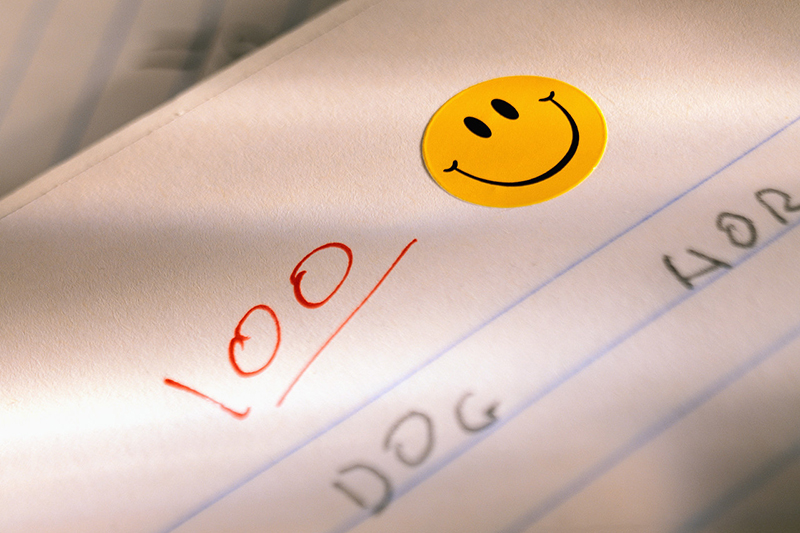 100
DOG HOR